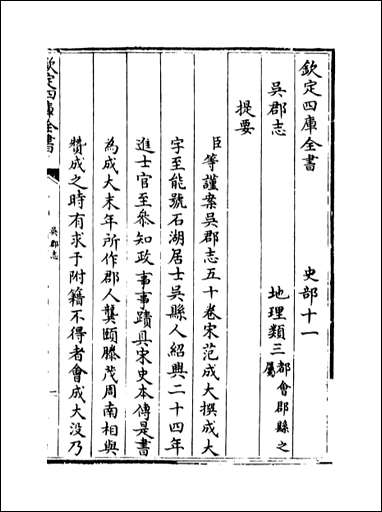 欽定四庫全書　史部十一
吳郡志　地理類三都會郡縣之屬
提要
臣等謹案吳郡志五十卷宋范成大撰成大
字至能號石湖居士吳縣人紹興二十四年
進士官至叅知政事事蹟具宋史本傳是書
為成大末年所作郡人龔頤滕茂周南相與
贊成之時有求于附籍不得者會成大没乃
欽定四庫全書
吳郡志